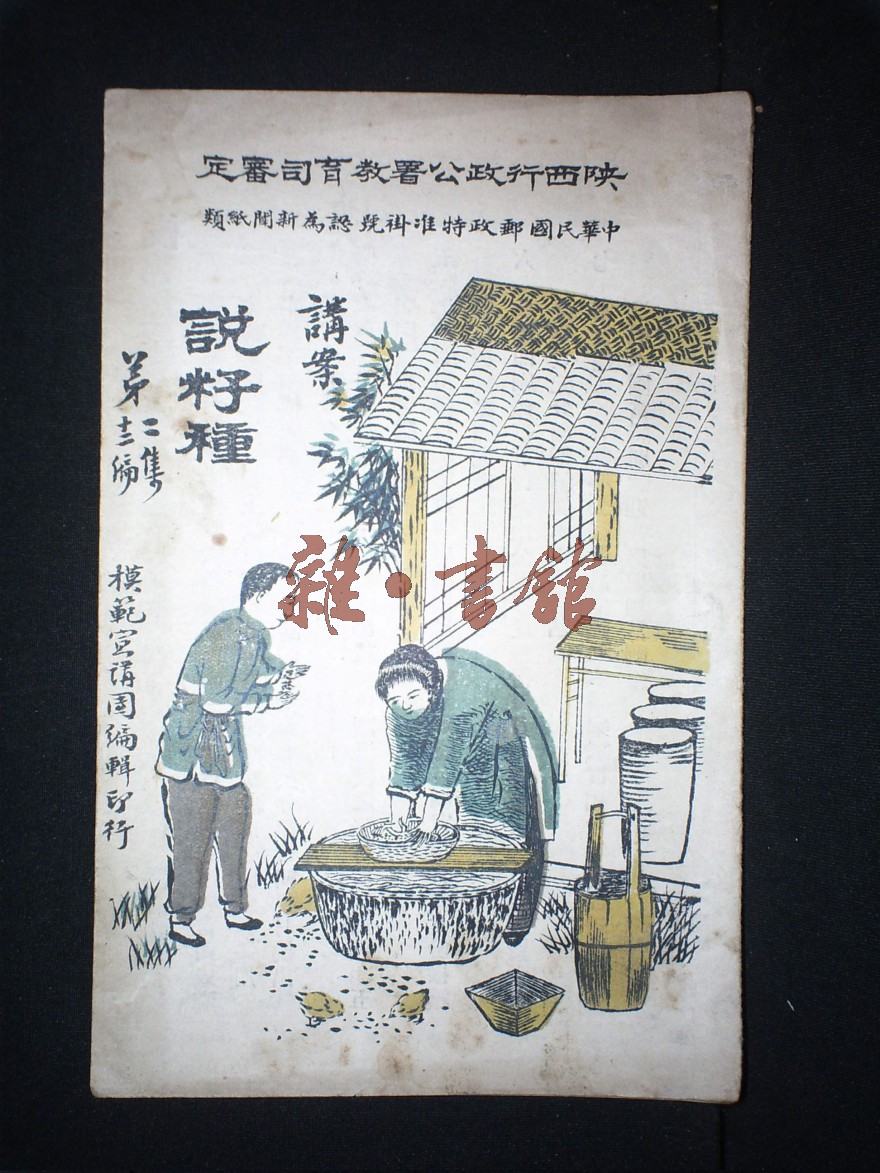 陝西行政公署教育司審定
中華民國郵政特准掛號認為新聞紙類
講案
說籽種
第二集
編
模範宣講團編輯印行
雜·書館